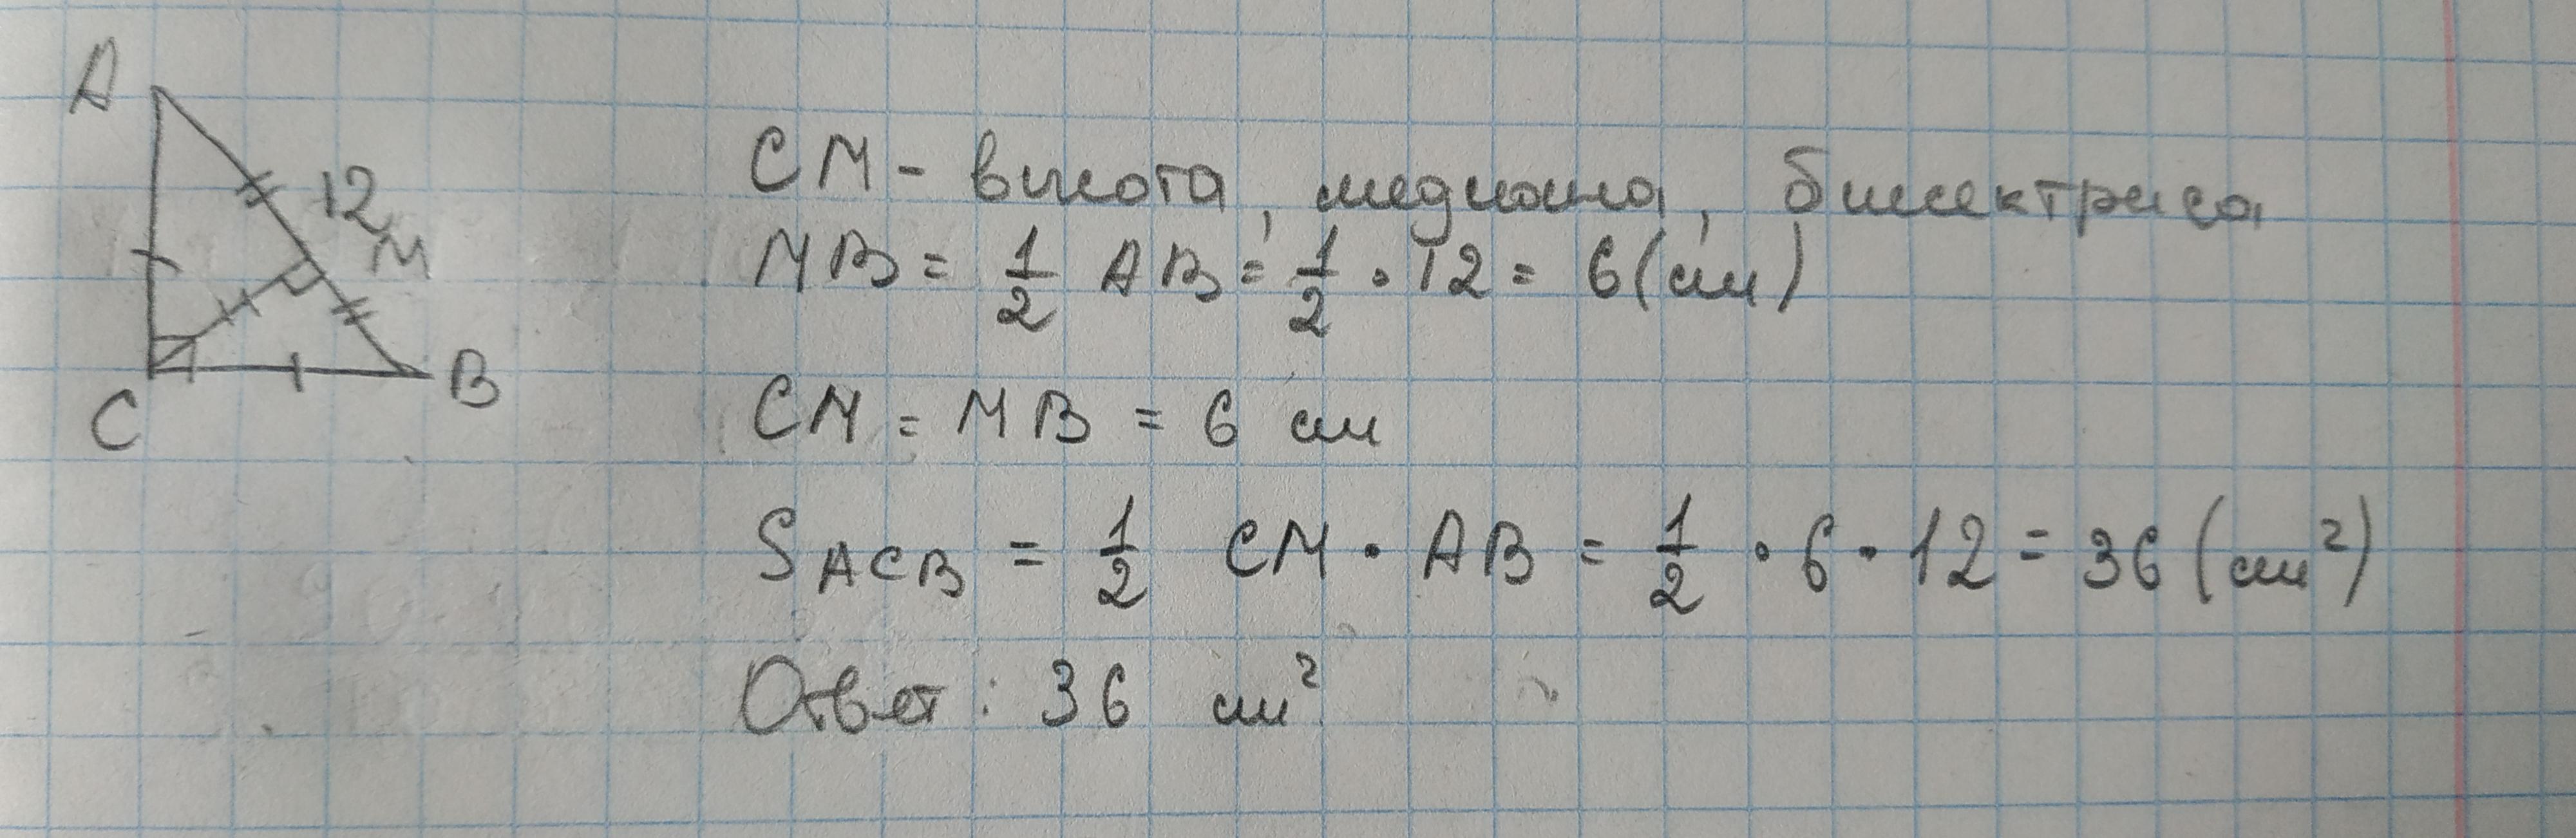 A
12
M
C
B
CM - высота, медиана, биссектриса
MB = 1/2 AB = 1/2 · 12 = 6 (см)
CM = MB = 6 см
S ACB = 1/2 CM · AB = 1/2 · 6 · 12 = 36 (см²)
Ответ: 36 см²